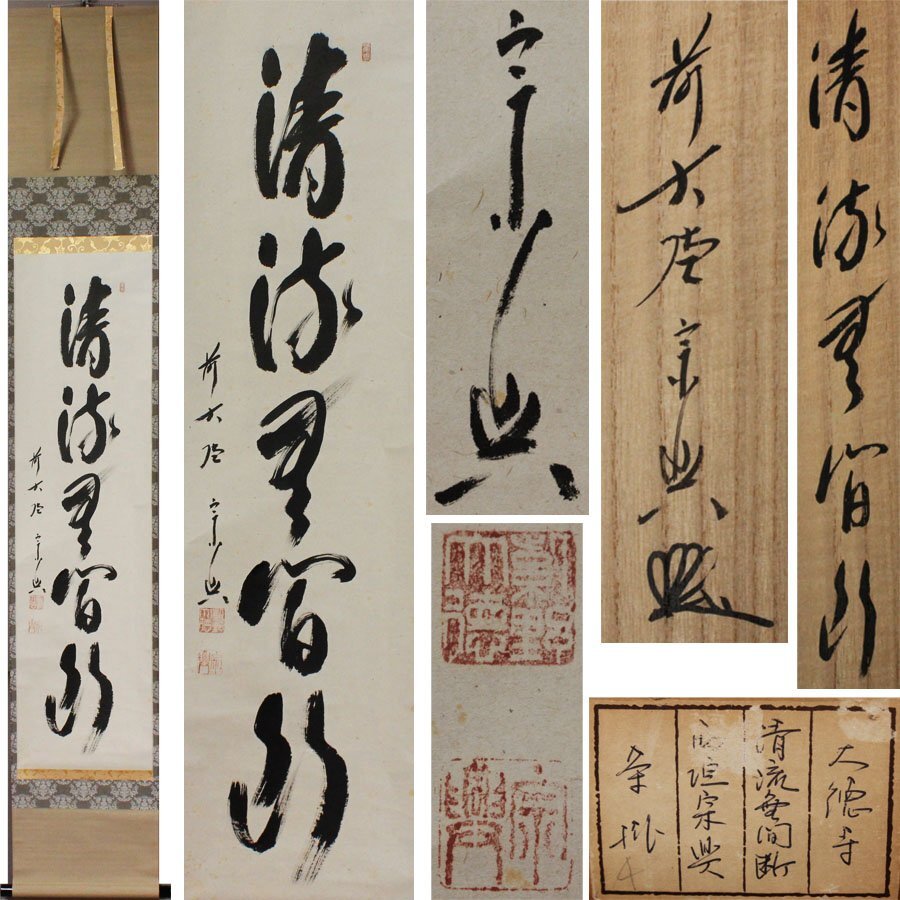 清流無間断
前大徳 宗興
清流無間断
前大徳 宗興
宗興
紫野大徳
宗興
前大徳 宗興
清流無間断
大徳寺
清流無間断
西垣宗興
茶掛
4